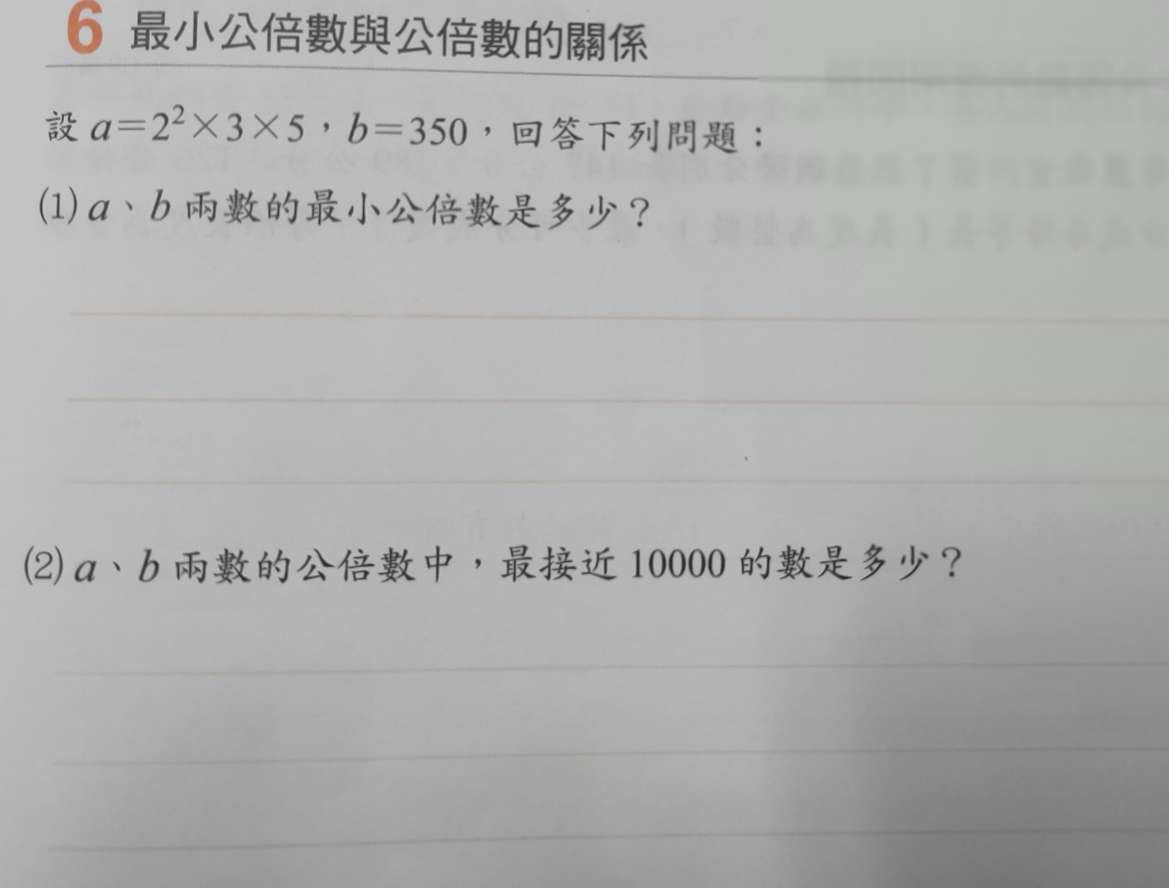 6 最小公倍數與公倍數的關係
設 a=2²×3×5，b=350，回答下列問題：
(1) a、b 兩數的最小公倍數是多少？
(2) a、b 兩數的公倍數中，最接近 10000 的數是多少？